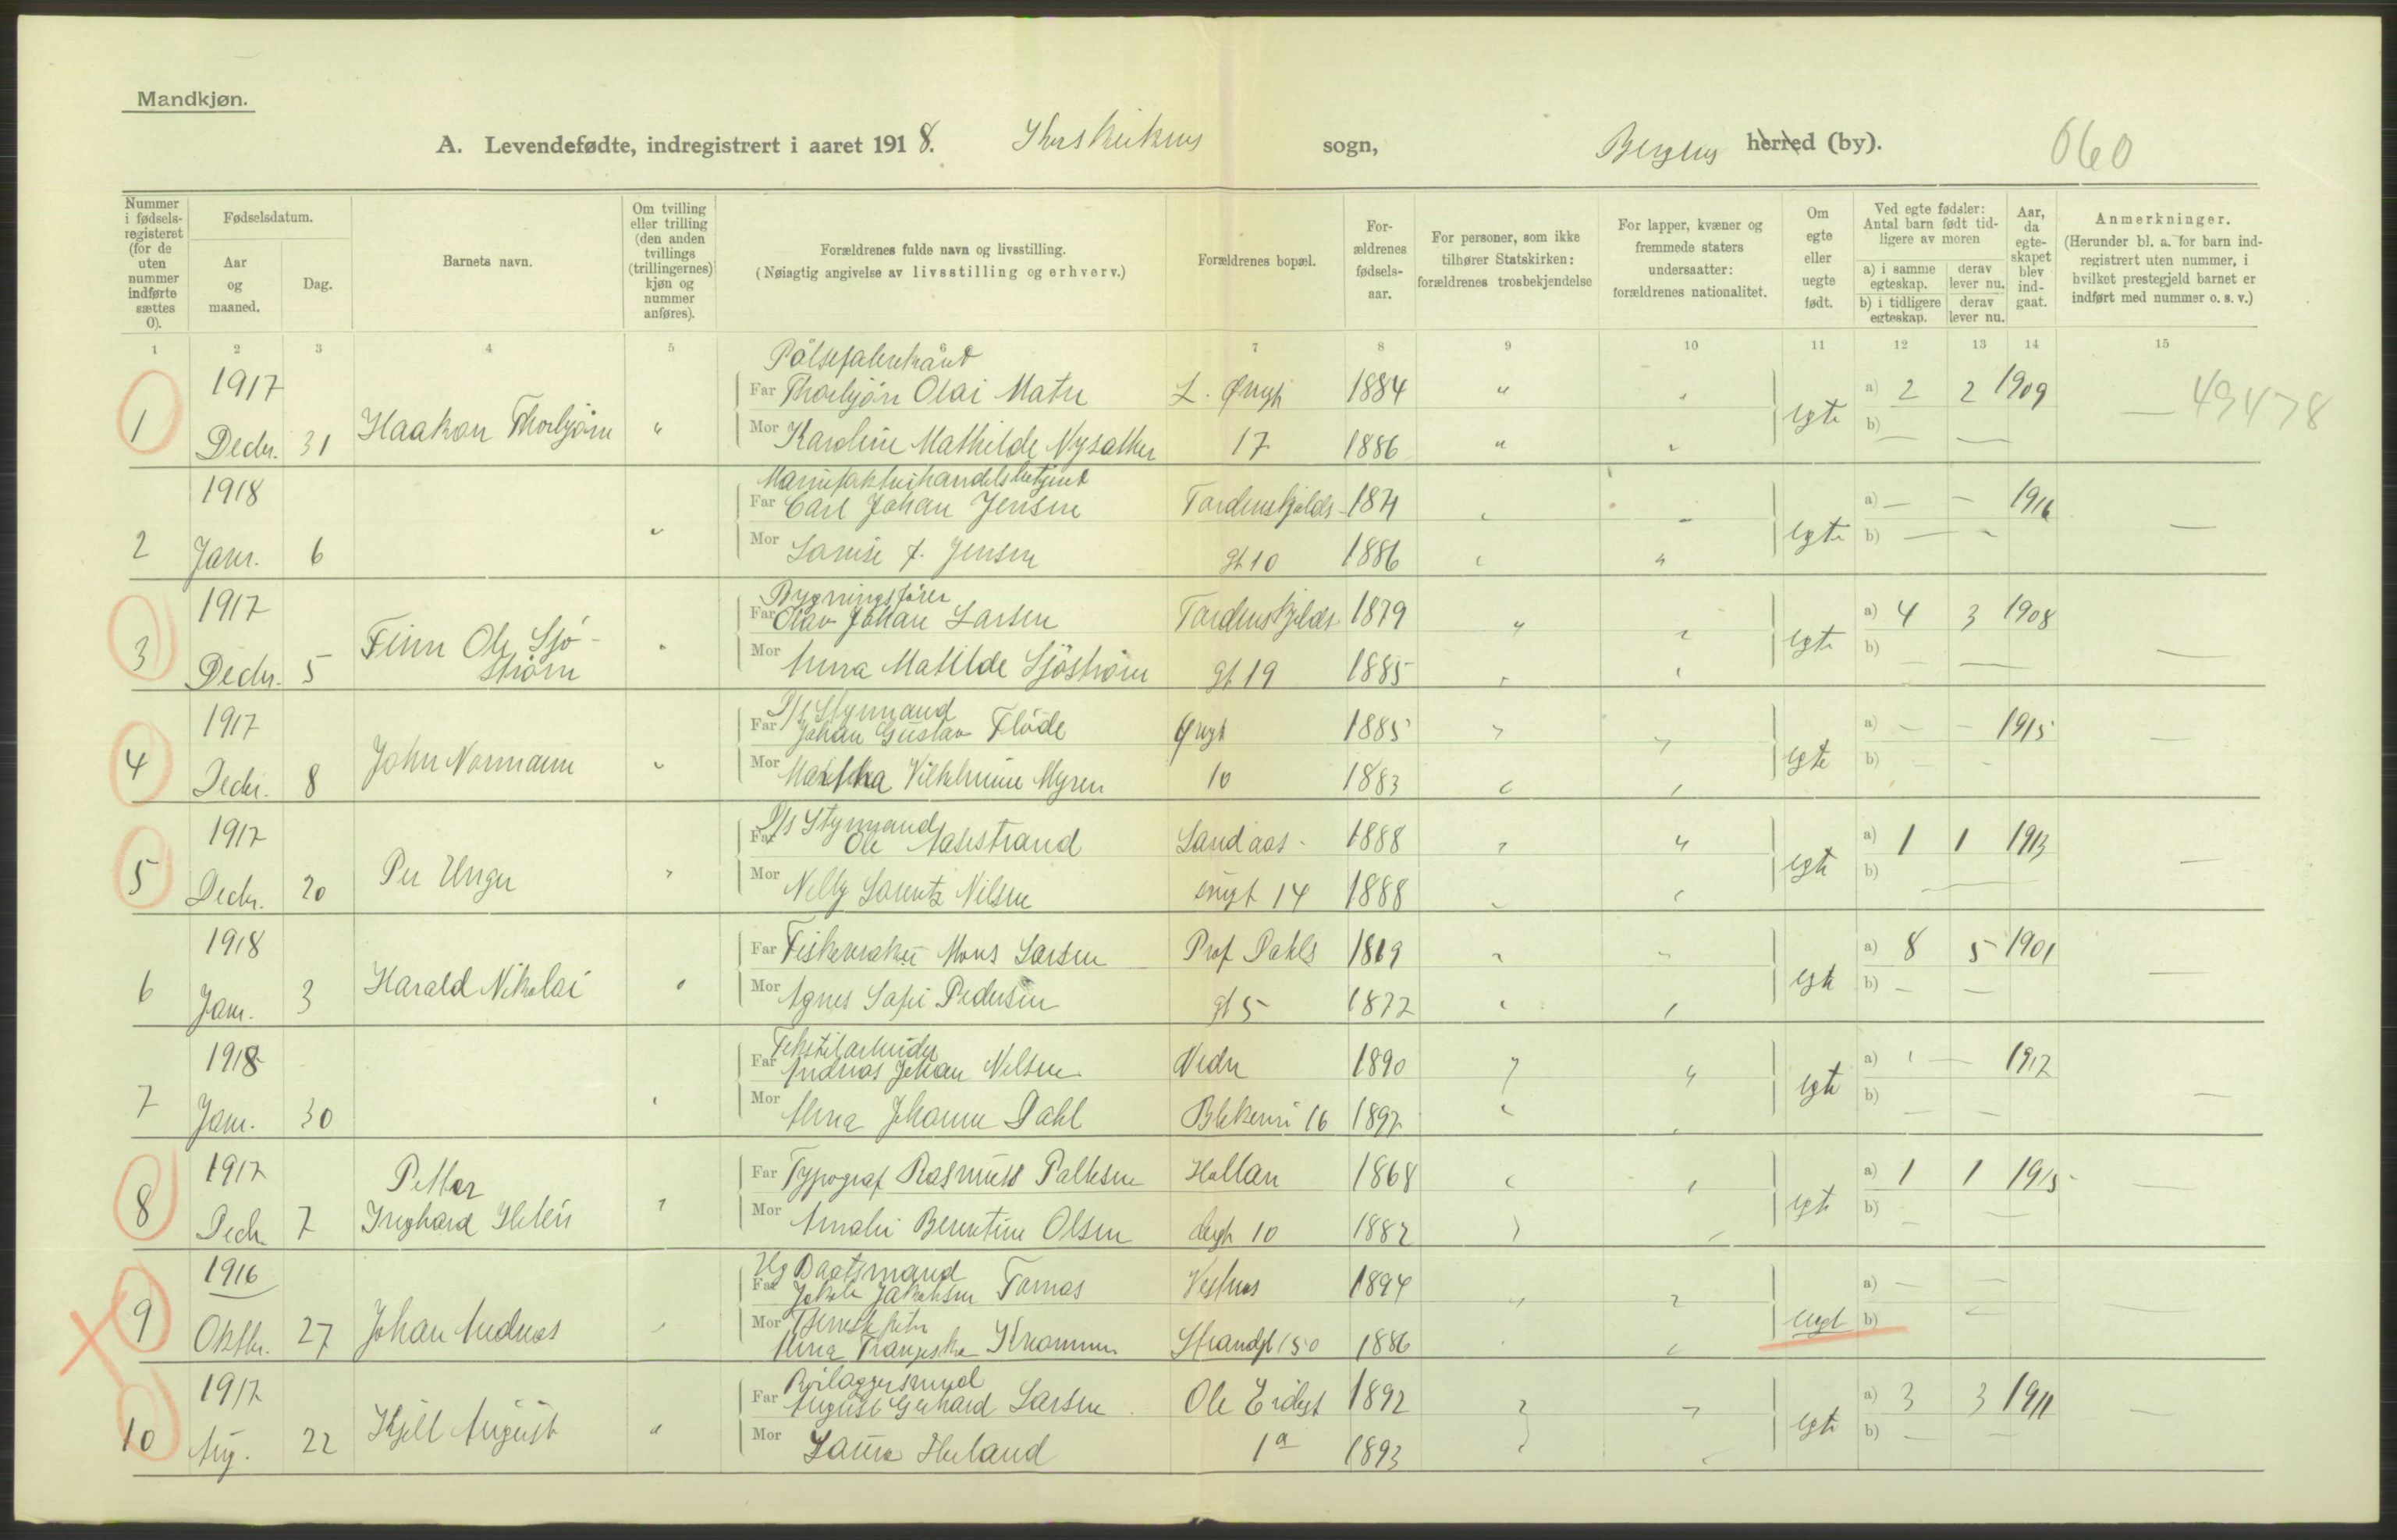 Mandkjøn.
A. Levendefødte, indregistrert i aaret 1918. Korskirkens sogn, Bergens herred (by). 660
Nummer i fødselsregisteret (for de uten nummer indførte sættes 0).
Fødselsdatum.
Aar og maaned.
Dag.
Barnets navn.
Om tvilling eller trilling (den anden tvillings (trillingernes) kjøn og nummer anføres).
Forældrenes fulde navn og livsstilling.
(Nøiagtig angivelse av livsstilling og erhverv.)
Forældrenes bopæl.
Forældrenes fødselsaar.
For personer, som ikke tilhører Statskirken: forældrenes trosbekjendelse
For lapper, kvæner og fremmede staters undersaatter: forældrenes nationalitet.
Om egte eller uegte født.
Ved egte fødsler: Antal barn født tidligere av moren
a) i samme egteskap. derav lever nu.
b) i tidligere egteskap. derav lever nu.
Aar, da egteskapet blev indgaat.
Anmerkninger.
(Herunder bl. a. for barn indregistrert uten nummer, i hvilket prestegjeld barnet er indført med nummer o. s. v.)
1 2 3 4 5 6 7 8 9 10 11 12 13 14 15
Pölsefabrikant
1917 Far Thorbjörn Olai Matre L. Øvregt 1884 " " a) 2 2 1909
1 Decbr. 31 Haakon Thorbjörn " Mor Karoline Mathilde Nysæther 17 1886 " " egte b) — — — 49478
Manufakturhandelsbetjent
1918 Far Carl Johan Jensen Tordenskjolds 1871 " " a) — — 1916
2 Janr. 6 " Mor Lovise f. Jensen gt 10 1886 " " egte b) — — —
Bygningsfører
1917 Far Olav Johan Larsen Tordenskjolds 1879 " " a) 4 3 1908
3 Decbr. 5 Finn Ole Sjöström " Mor Anna Matilde Sjöström gt 19 1885 " " egte b) — — —
D/s Styrmand
1917 Far Johan Gustav Flöde Øvregt 1885 " " a) — — 1915
4 Decbr. 8 John Normann " Mor Martha Vilhelmine Myren 10 1883 " " egte b) — — —
D/s Styrmand
1917 Far Ole Aasestrand Sandaas- 1888 " " a) 1 1 1913
5 Decbr. 20 Per Unger " Mor Nelly Lorentz Nilsen 14 1888 " " egte b) — —
1918 Far Fiskevraker Mons Larsen Prof Dahls 1869 " " a) 8 5 1901
6 Janr. 3 Harald Nikolai " Mor Agnes Sofie Pedersen gt 5 1872 " " egte b) — — —
Tekstilarbeider
1918 Far Andreas Johan Nilsen Nedre 1890 " " a) 1 — 1912
7 Janr. 30 " Mor Anna Johanne Dahl Blekevei 16 1892 " " egte b) — — —
1917 Petter Far Typograf Rasmus Pallesen Hollen 1868 " " a) 1 1 1915
8 Decbr. 7 Inghard " Mor Amalie Berentine Olsen dergt 10 1882 " " egte b) — — —
Ug Baatsmand
1916 Far Jakob Jakobsen Tornas Vestnes 1894 " " a) — —
Mor Tjenestepike
9 Oktbr. 27 Johan Andreas " Anna Franziska Strandgt 150 1886 " " uegte b) — —
Rörlæggersvend
1917 Far August Gerhard Larsen Ole Irgt 1892 " " a) 3 3 1911
10 Aug. 22 Kjell August " Mor Laura Heland 1a 1893 " " egte b) — — —